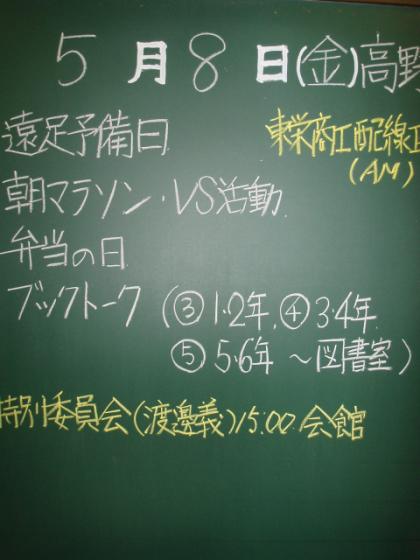 5月8日(金)高野
遠足予備日 東栄商工配線工
(AM)
朝マラソン・VS活動
弁当の日
ブックトーク(③1・2年,④3・4年
⑤5・6年 〜図書室)
特別委員会(渡邊義)15:00 会館